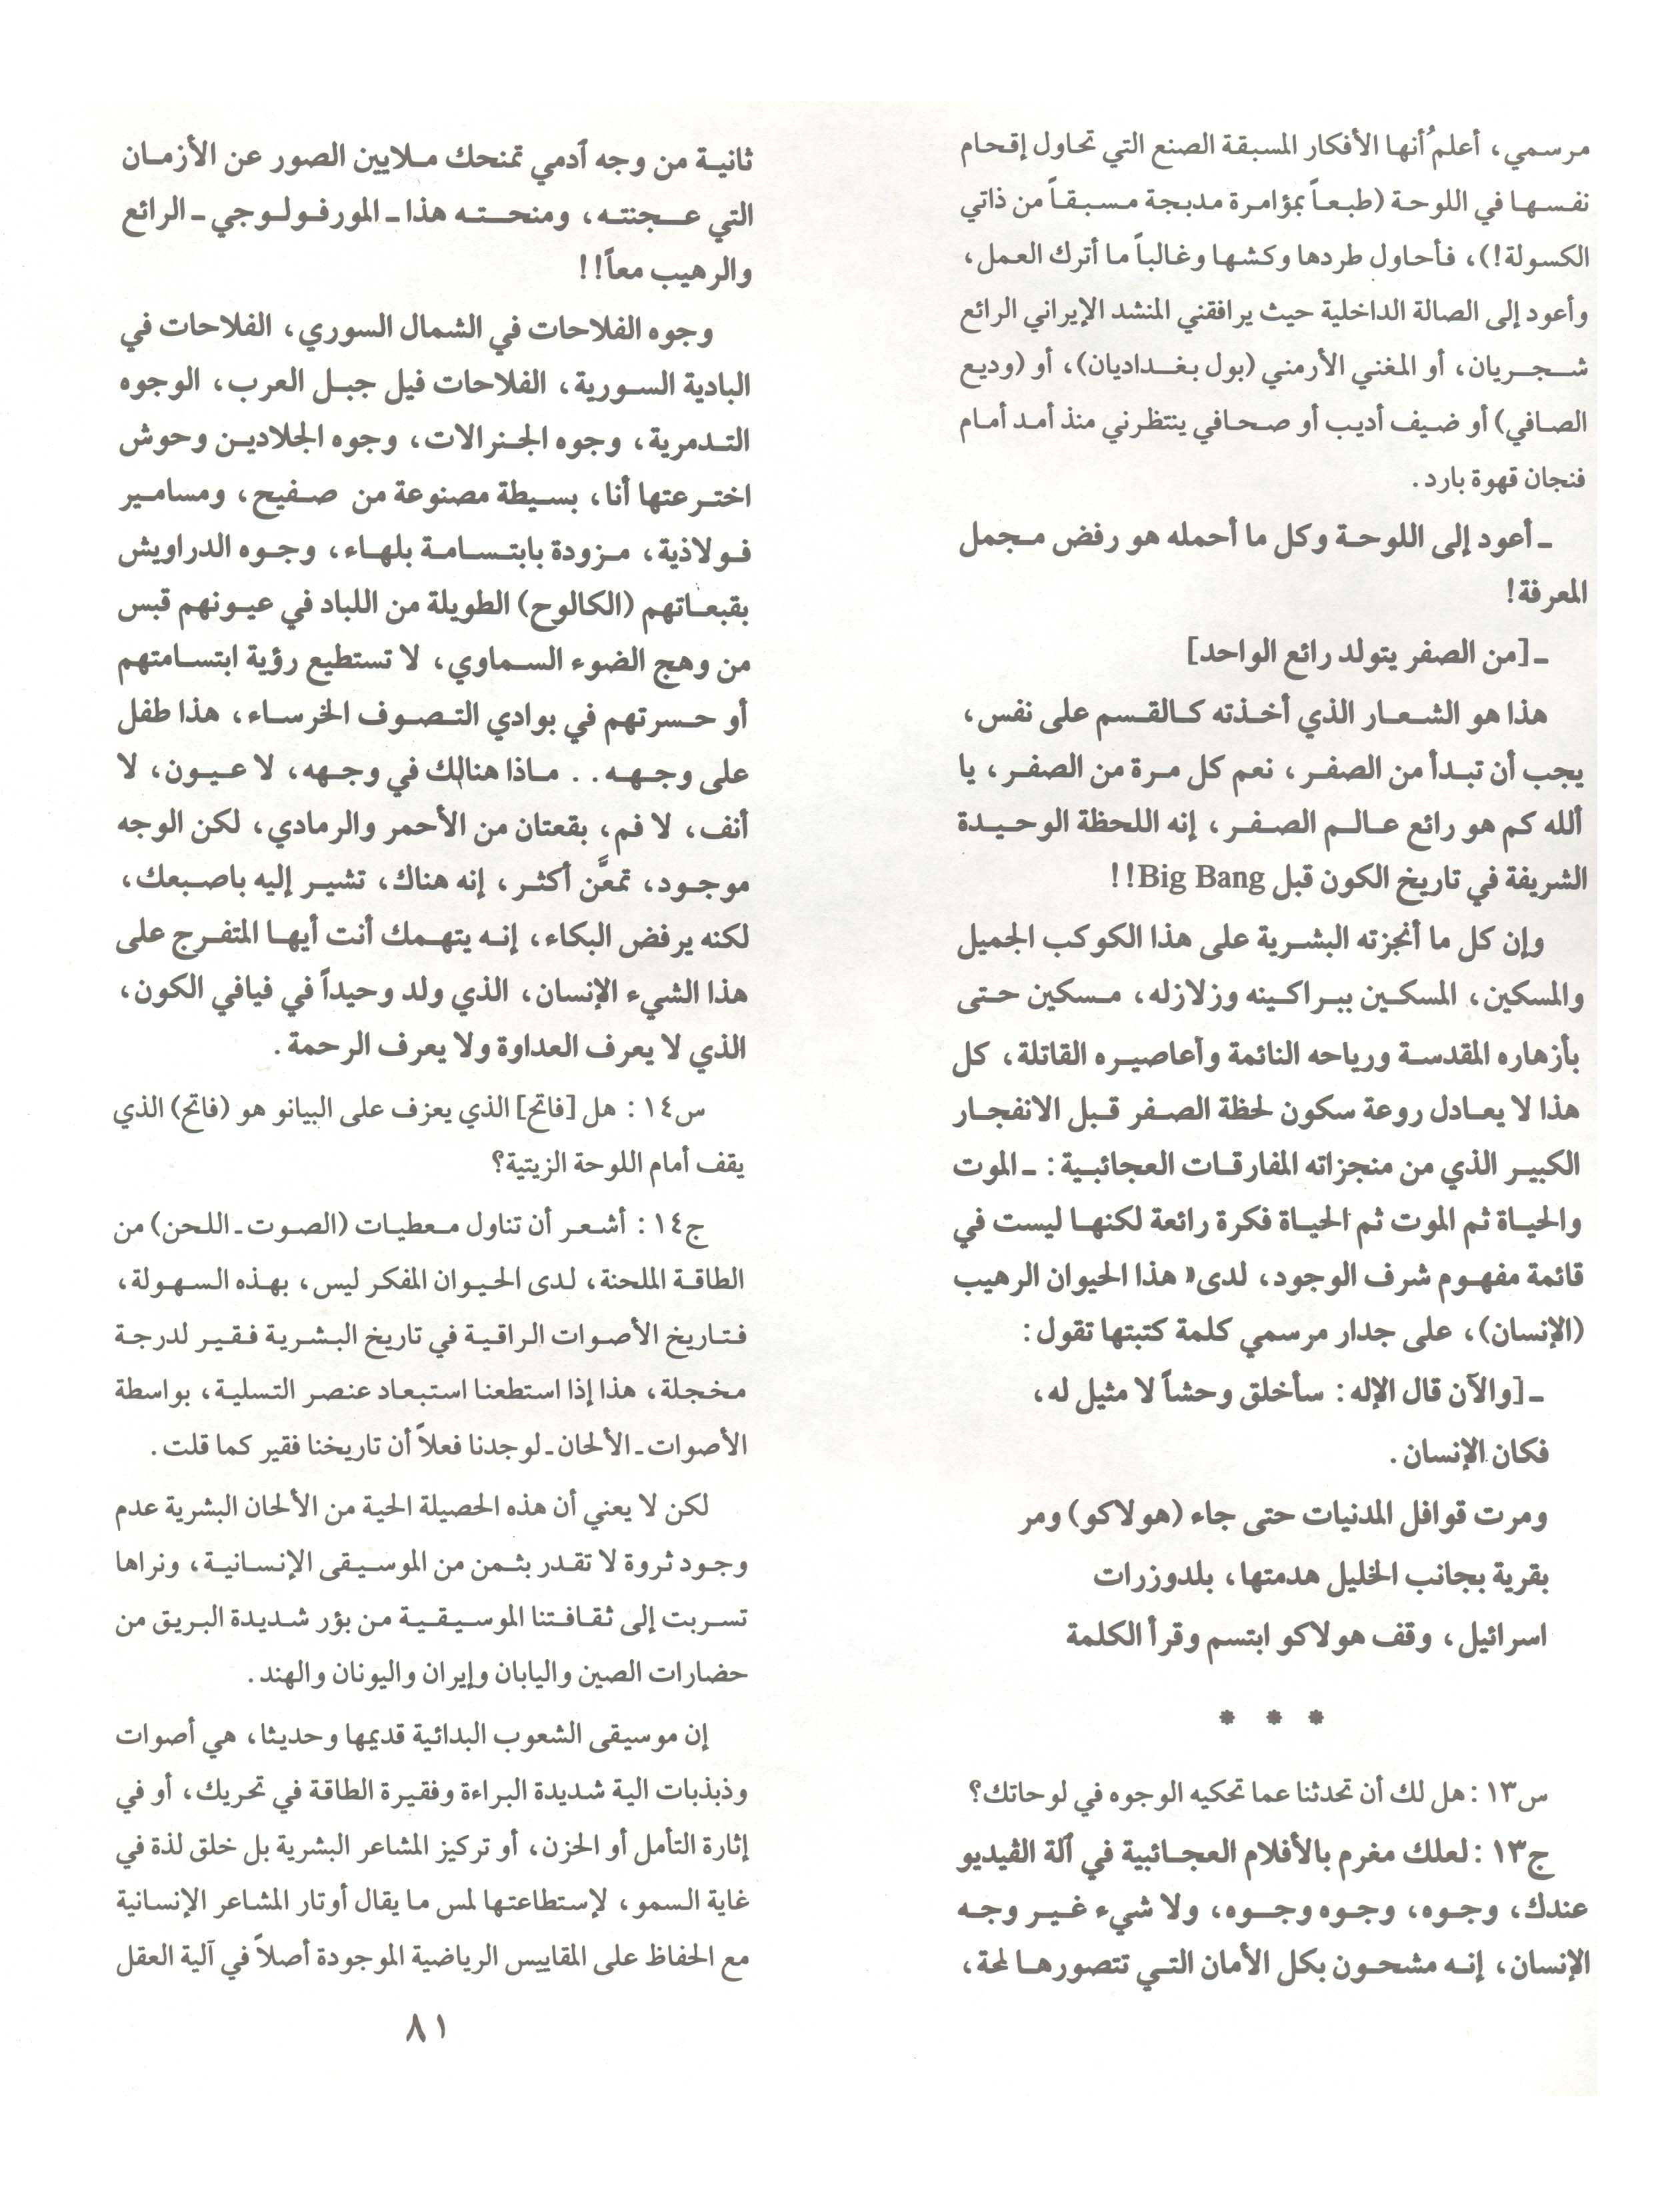 مرسمي، أعلمُ أنها الأفكار المسبقة الصنع التي تحاول إقحام
نفسها في اللوحة (طبعاً بمؤامرة مدبجة مسبقاً من ذاتي
الكسولة!)، فأحاول طردها وكشها وغالباً ما أترك العمل،
وأعود إلى الصالة الداخلية حيث يرافقني المنشد الإيراني الرائع
شجريان، أو المغني الأرمني (بول بغداديان)، أو (وديع
الصافي) أو ضيف أديب أو صحافي ينتظرني منذ أمد أمام
فنجان قهوة بارد.
ـ أعود إلى اللوحة وكل ما أحمله هو رفض مجمل
المعرفة!
ـ [من الصفر يتولد رائع الواحد]
هذا هو الشعار الذي أخذته كالقسم على نفس،
يجب أن تبدأ من الصفر، نعم كل مرة من الصفر، يا
ألله كم هو رائع عالم الصفر، إنه اللحظة الوحيدة
الشريفة في تاريخ الكون قبل Big Bang!!
وإن كل ما أنجزته البشرية على هذا الكوكب الجميل
والمسكين، المسكين ببراكينه وزلازله، مسكين حتى
بأزهاره المقدسة ورياحه النائمة وأعاصيره القاتلة، كل
هذا لا يعادل روعة سكون لحظة الصفر قبل الانفجار
الكبير الذي من منجزاته المفارقات العجائبية: ـ الموت
والحياة ثم الموت ثم الحياة فكرة رائعة لكنها ليست في
قائمة مفهوم شرف الوجود، لدى» هذا الحيوان الرهيب
(الإنسان)، على جدار مرسمي كلمة كتبتها تقول:
ـ [والآن قال الإله: سأخلق وحشاً لا مثيل له،
فكان الإنسان.
ومرت قوافل المدنيات حتى جاء (هولاكو) ومر
بقرية بجانب الخليل هدمتها، بلدوزرات
اسرائيل، وقف هولاكو ابتسم وقرأ الكلمة
* * *
س١٣: هل لك أن تحدثنا عما تحكيه الوجوه في لوحاتك؟
ج١٣: لعلك مغرم بالأفلام العجائبية في آلة الڤيديو
عندك، وجوه، وجوه وجوه، ولا شيء غير وجه
الإنسان، إنه مشحون بكل الأمان التي تتصورها لمحة،
ثانية من وجه آدمي تمنحك ملايين الصور عن الأزمان
التي عجنته، ومنحته هذا ـ المورفولوجي ـ الرائع
والرهيب معاً!!
وجوه الفلاحات في الشمال السوري، الفلاحات في
البادية السورية، الفلاحات فيل جبل العرب، الوجوه
التدمرية، وجوه الجنرالات، وجوه الجلادين وحوش
اخترعتها أنا، بسيطة مصنوعة من صفيح، ومسامير
فولاذية، مزودة بابتسامة بلهاء، وجوه الدراويش
بقبعاتهم (الكالوح) الطويلة من اللباد في عيونهم قبس
من وهج الضوء السماوي، لا تستطيع رؤية ابتسامتهم
أو حسرتهم في بوادي التصوف الخرساء، هذا طفل
على وجهه.. ماذا هنالك في وجهه، لا عيون، لا
أنف، لا فم، بقعتان من الأحمر والرمادي، لكن الوجه
موجود، تمعَّن أكثر، إنه هناك، تشير إليه باصبعك،
لكنه يرفض البكاء، إنه يتهمك أنت أيها المتفرج على
هذا الشيء الإنسان، الذي ولد وحيداً في فيافي الكون،
الذي لا يعرف العداوة ولا يعرف الرحمة.
س١٤: هل [فاتح] الذي يعزف على البيانو هو (فاتح) الذي
يقف أمام اللوحة الزيتية؟
ج١٤: أشعر أن تناول معطيات (الصوت ـ اللحن) من
الطاقة الملحنة، لدى الحيوان المفكر ليس، بهذه السهولة،
فتاريخ الأصوات الراقية في تاريخ البشرية فقير لدرجة
مخجلة، هذا إذا استطعنا استبعاد عنصر التسلية، بواسطة
الأصوات ـ الألحان ـ لوجدنا فعلاً أن تاريخنا فقير كما قلت.
لكن لا يعني أن هذه الحصيلة الحية من الألحان البشرية عدم
وجود ثروة لا تقدر بثمن من الموسيقى الإنسانية، ونراها
تسربت إلى ثقافتنا الموسيقية من بؤر شديدة البريق من
حضارات الصين واليابان وإيران واليونان والهند.
إن موسيقى الشعوب البدائية قديمها وحديثا، هي أصوات
وذبذبات الية شديدة البراءة وفقيرة الطاقة في تحريك، أو في
إثارة التأمل أو الحزن، أو تركيز المشاعر البشرية بل خلق لذة في
غاية السمو، لإستطاعتها لمس ما يقال أوتار المشاعر الإنسانية
مع الحفاظ على المقاييس الرياضية الموجودة أصلاً في آلية العقل
٨١